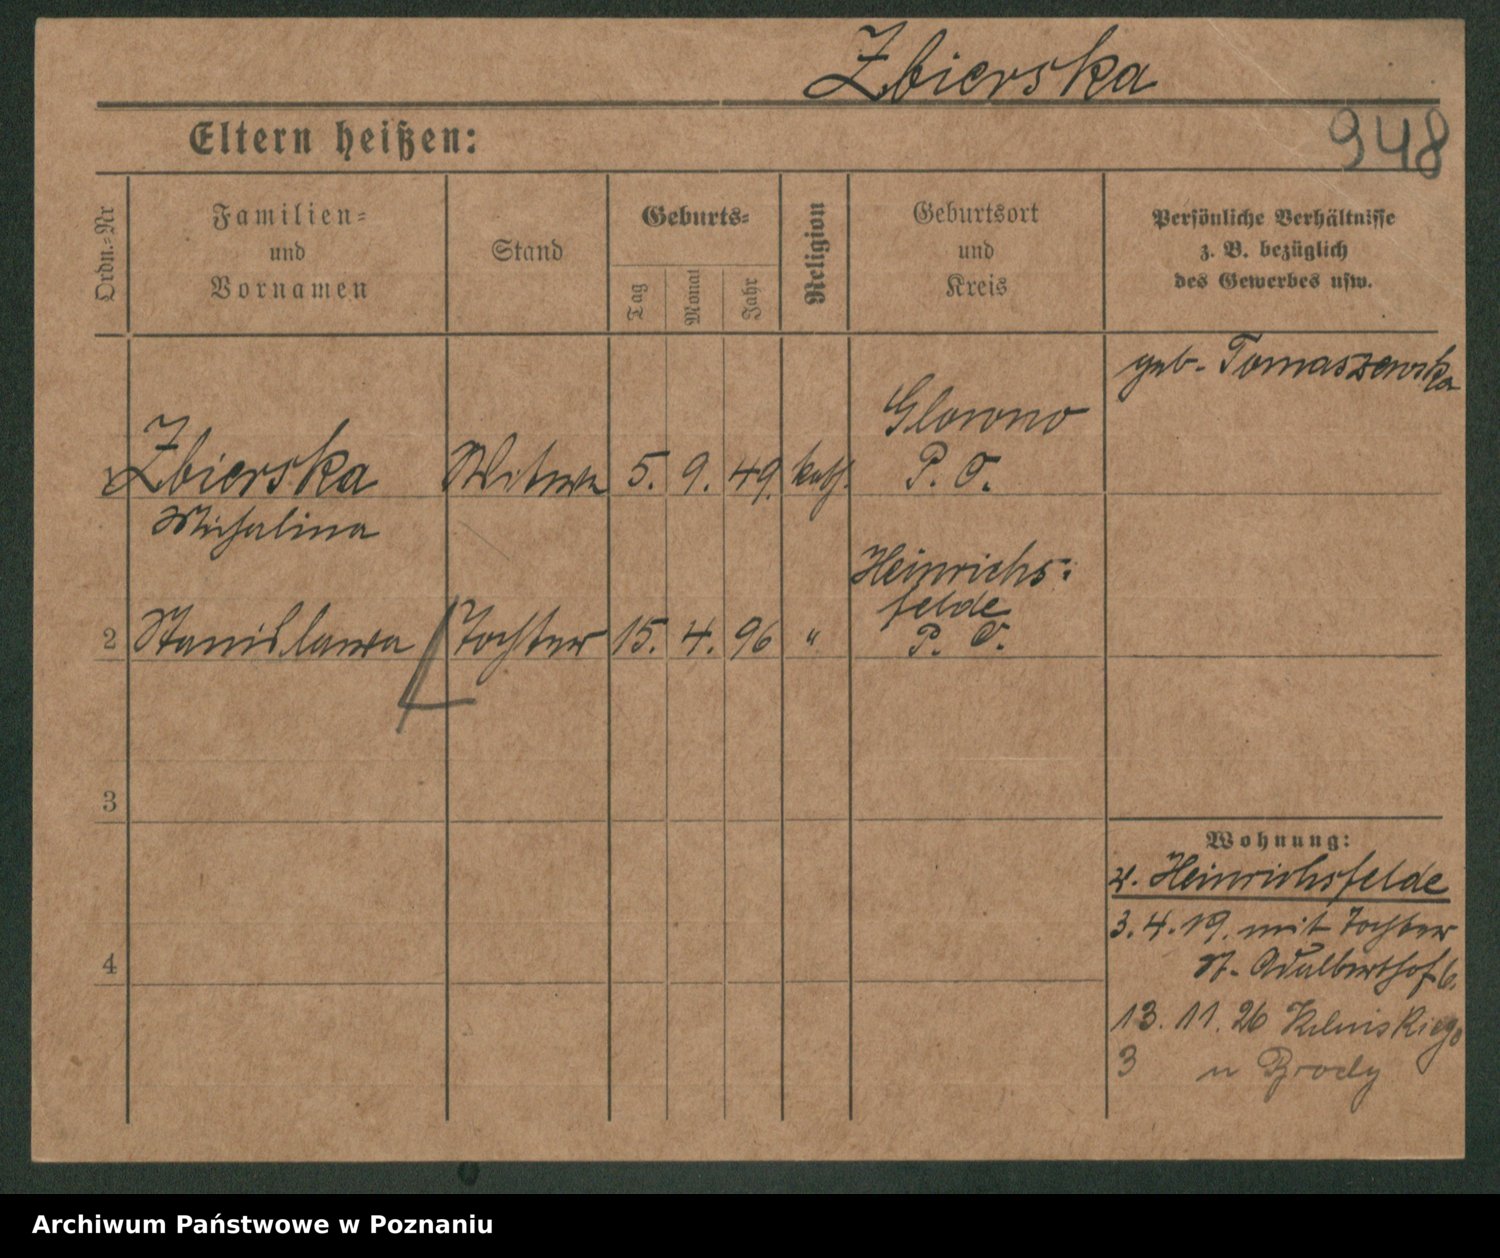 Zbierska
Eltern heißen:
948
Ordn.=Nr
Familien=
und
Vornamen
Stand
Geburts=
Tag
Monat
Jahr
Religion
Geburtsort
und
Kreis
Persönliche Verhältnisse
z. B. bezüglich
des Gewerbes usw.
geb. Tomaszewska
1 Zbierska Witwe 5. 9. 49. kath. Glowno
P. O.
Michalina
2 Stanislawa Tochter 15. 4. 96 " Heinrichs=
felde
P. O.
3
4
Wohnung:
v. Heinrichsfelde
3. 4. 19. mit Tochter
St. Adalberthof 6.
13. 11. 26
3 n Brody
Archiwum Państwowe w Poznaniu